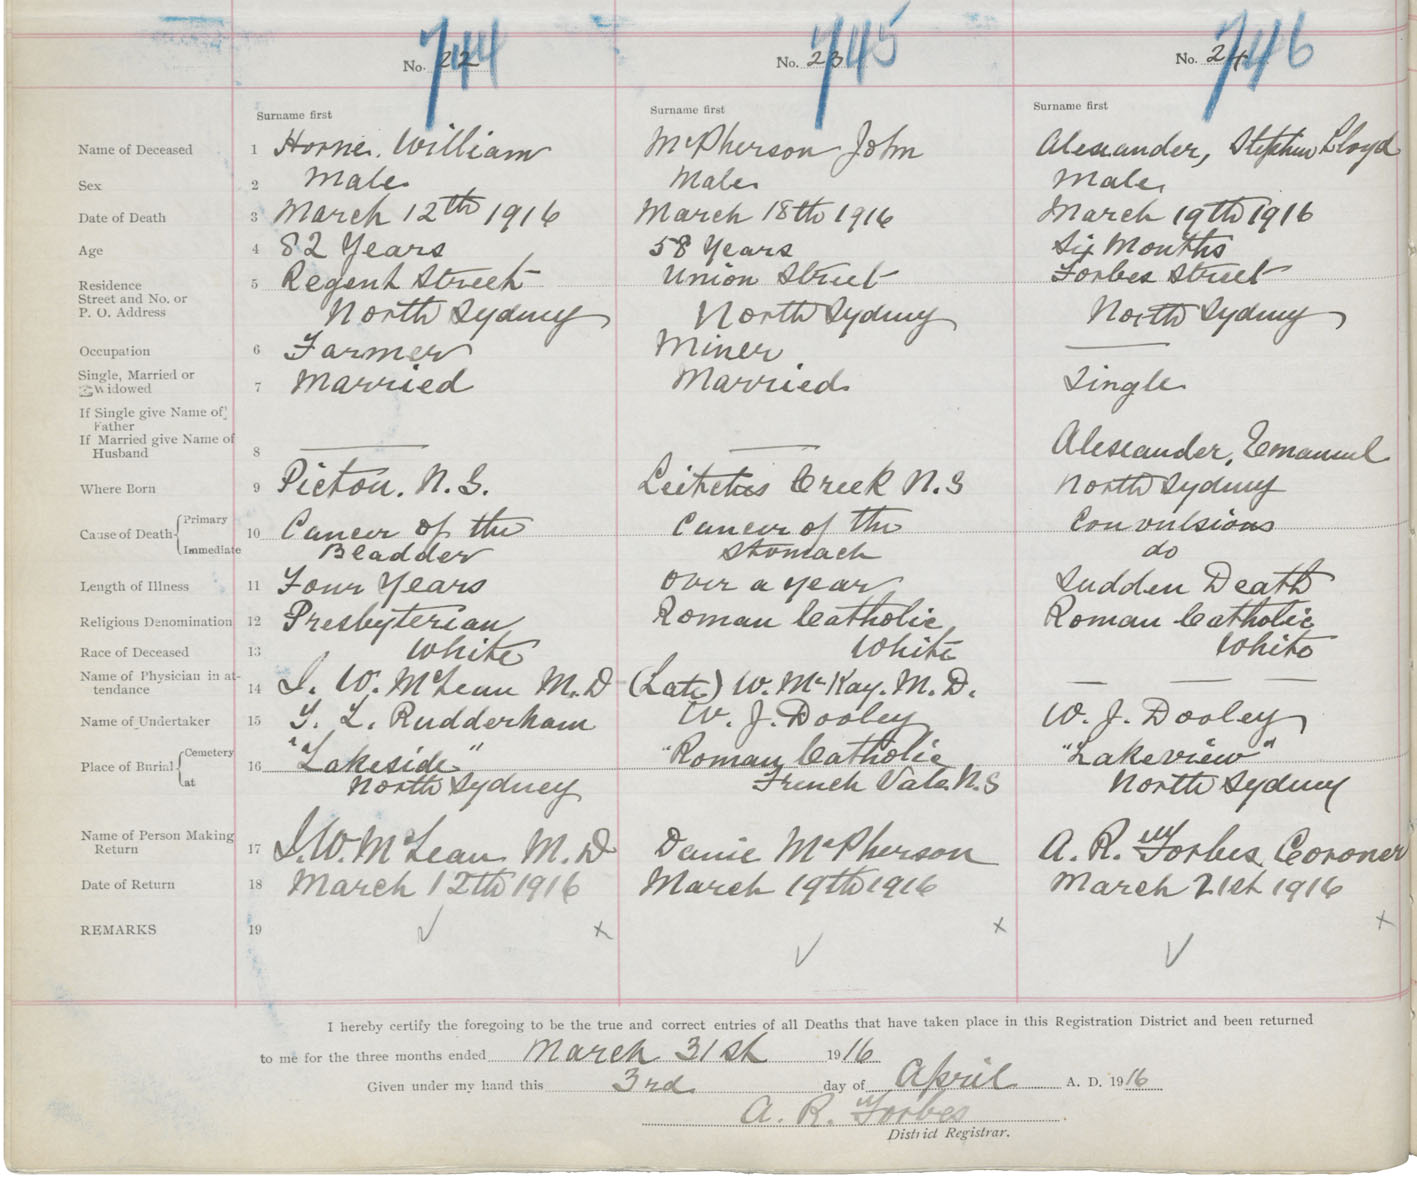 744 745 746
No. 22 No. 23 No. 24
Surname first Surname first Surname first
Name of Deceased 1 Horne. William McPherson John Alexander, Stephen Lloyd
Sex 2 Male Male Male
Date of Death 3 March 12th 1916 March 18th 1916 March 19th 1916
Age 4 82 Years 58 Years Six Months
Residence 5 Regent Street Union Street Forbes Street
Street and No. or
P. O. Address North Sydney North Sydney North Sydney
Occupation 6 Farmer Miner —
Single, Married or
Widowed 7 Married Married Single
If Single give Name of
Father
If Married give Name of
Husband 8 — — Alexander, Emanuel
Where Born 9 Pictou. N. S. Leitches Creek N.S North Sydney
Cause of Death Primary 10 Cancer of the Cancer of the Convulsions
Immediate Bladder Stomach do
Length of Illness 11 Four Years over a year Sudden Death
Religious Denomination 12 Presbyterian Roman Catholic Roman Catholic
Race of Deceased 13 White White White
Name of Physician in at-
tendance 14 J. W. McLean M.D (Late) W. McKay. M.D. — — —
Name of Undertaker 15 F. L. Rudderham W. J. Dooley W. J. Dooley
Place of Burial Cemetery 16 "Lakeside" Roman Catholic "Lakeview"
at North Sydney French Vale N.S North Sydney
Name of Person Making
Return 17 J. W. McLean M.D McPherson A. R. Forbes Coroner
Date of Return 18 March 12th 1916 March 19th 1916 March 21st 1916
REMARKS 19
I hereby certify the foregoing to be the true and correct entries of all Deaths that have taken place in this Registration District and been returned
to me for the three months ended March 31st 1916
Given under my hand this 3rd day of April A. D. 1916
A. R. Forbes
District Registrar.